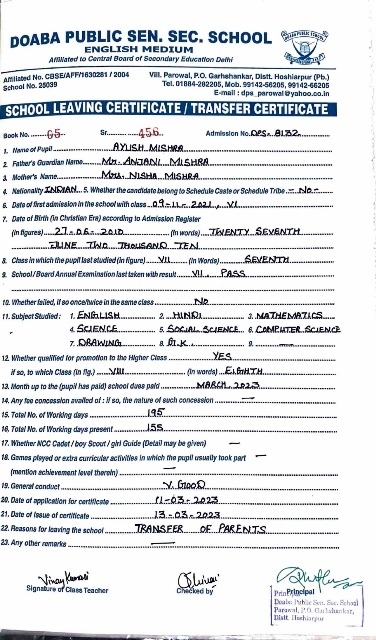 DOABA PUBLIC SEN. SEC. SCHOOL
ENGLISH MEDIUM
Affiliated to Central Board of Secondary Education Delhi
Affiliated No. CBSE/AFF/1630281 / 2004
School No. 25039
Vill. Parowal, P.O. Garhshankar, Distt. Hoshiarpur (Pb.)
Tel. 01884-282205, Mob. 99142-56205, 99142-66205
E-mail : dps_parowal@yahoo.co.in
SCHOOL LEAVING CERTIFICATE / TRANSFER CERTIFICATE
Book No. 65 Sr. 456 Admission No. DPS-8132
1. Name of Pupil AYUSH MISHRA
2. Father's Guardian Name Mr. ANJANI MISHRA
3. Mother's Name Mrs. NISHA MISHRA
4. Nationality INDIAN 5. Whether the candidate belong to Schedule Caste or Schedule Tribe - NO -
6. Date of first admission in the school with class 09-11-2021, VI
7. Date of Birth (in Christian Era) according to Admission Register
(In figures) 27-06-2010 (In words) TWENTY SEVENTH
JUNE TWO THOUSAND TEN
8. Class in which the pupil last studied (in figure) VII (In Words) SEVENTH
9. School / Board Annual Examination last taken with result VII PASS
10. Whether failed, if so once/twice in the same class NO
11. Subject Studied : 1. ENGLISH 2. HINDI 3. MATHEMATICS
4. SCIENCE 5. SOCIAL SCIENCE 6. COMPUTER SCIENCE
7. DRAWING 8. G.K. 9. —
12. Whether qualified for promotion to the Higher Class YES
if so, to which Class (in fig.) VIII (In words) EIGHTH
13. Month up to the (pupil has paid) school dues paid MARCH, 2023
14. Any fee concession availed of : if so, the nature of such concession —
15. Total No. of Working days 195
16. Total No. of Working days present 155
17. Whether NCC Cadet / boy Scout / girl Guide (Detail may be given) —
18. Games played or extra curricular activities in which the pupil usually took part —
(mention achievement level therein) —
19. General conduct V. GOOD
20. Date of application for certificate 11-03-2023
21. Date of issue of certificate 13-03-2023
22. Reasons for leaving the school TRANSFER OF PARENTS
23. Any other remarks —
Vinay Kumari
Signature of Class Teacher
Checked by
Principal
Principal
Doaba Public Sen. Sec. School
Parowal, P.O. Garhshankar,
Distt. Hoshiarpur